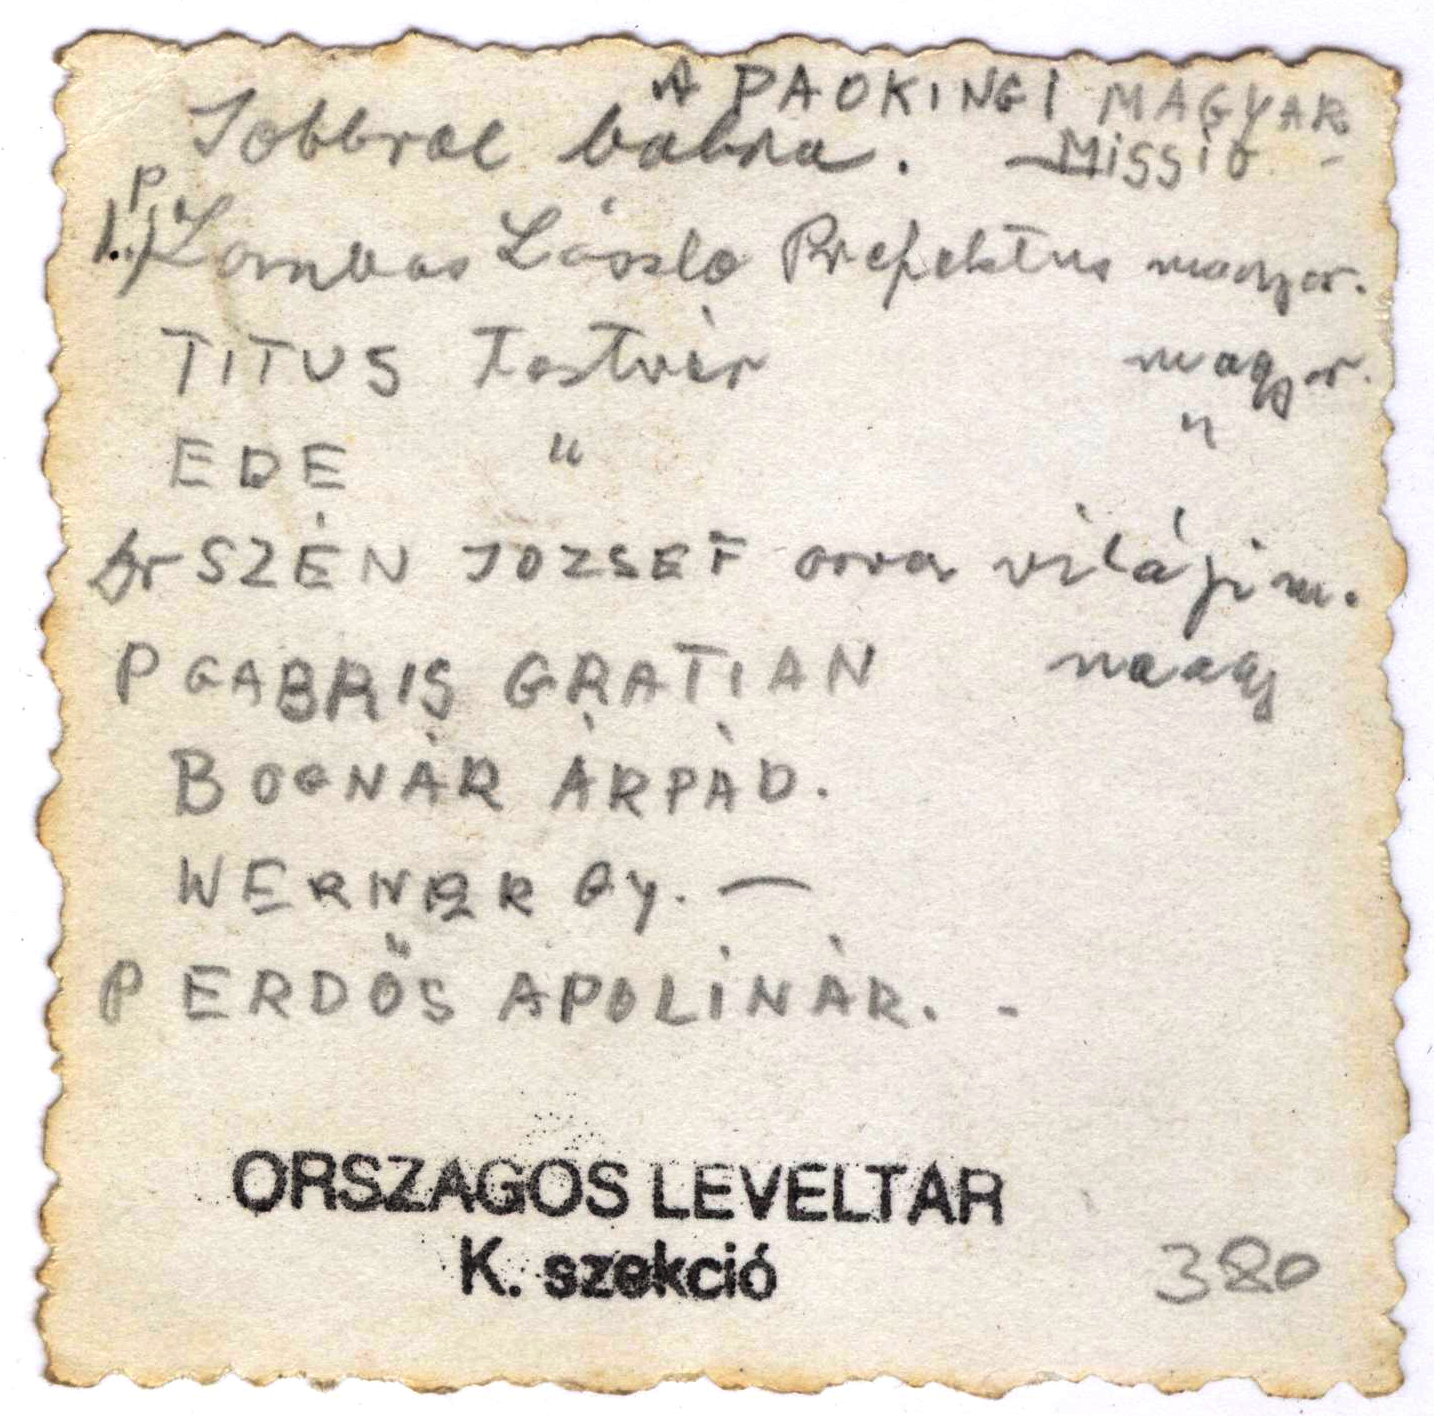 A PAOKINGI MAGYAR
Jobbrol balra. Missio -
1.) P Lombos László Prefektus magyar.
TITUS Testvér magyar.
EDE " "
Dr SZÉN JOZSEF orvos világi m.
P GABRIS GRATIAN magy
BOGNÁR ÁRPÁD.
WERNER Gy. —
P ERDŐS APOLINÁR. -
ORSZAGOS LEVELTAR
K. szekció
380